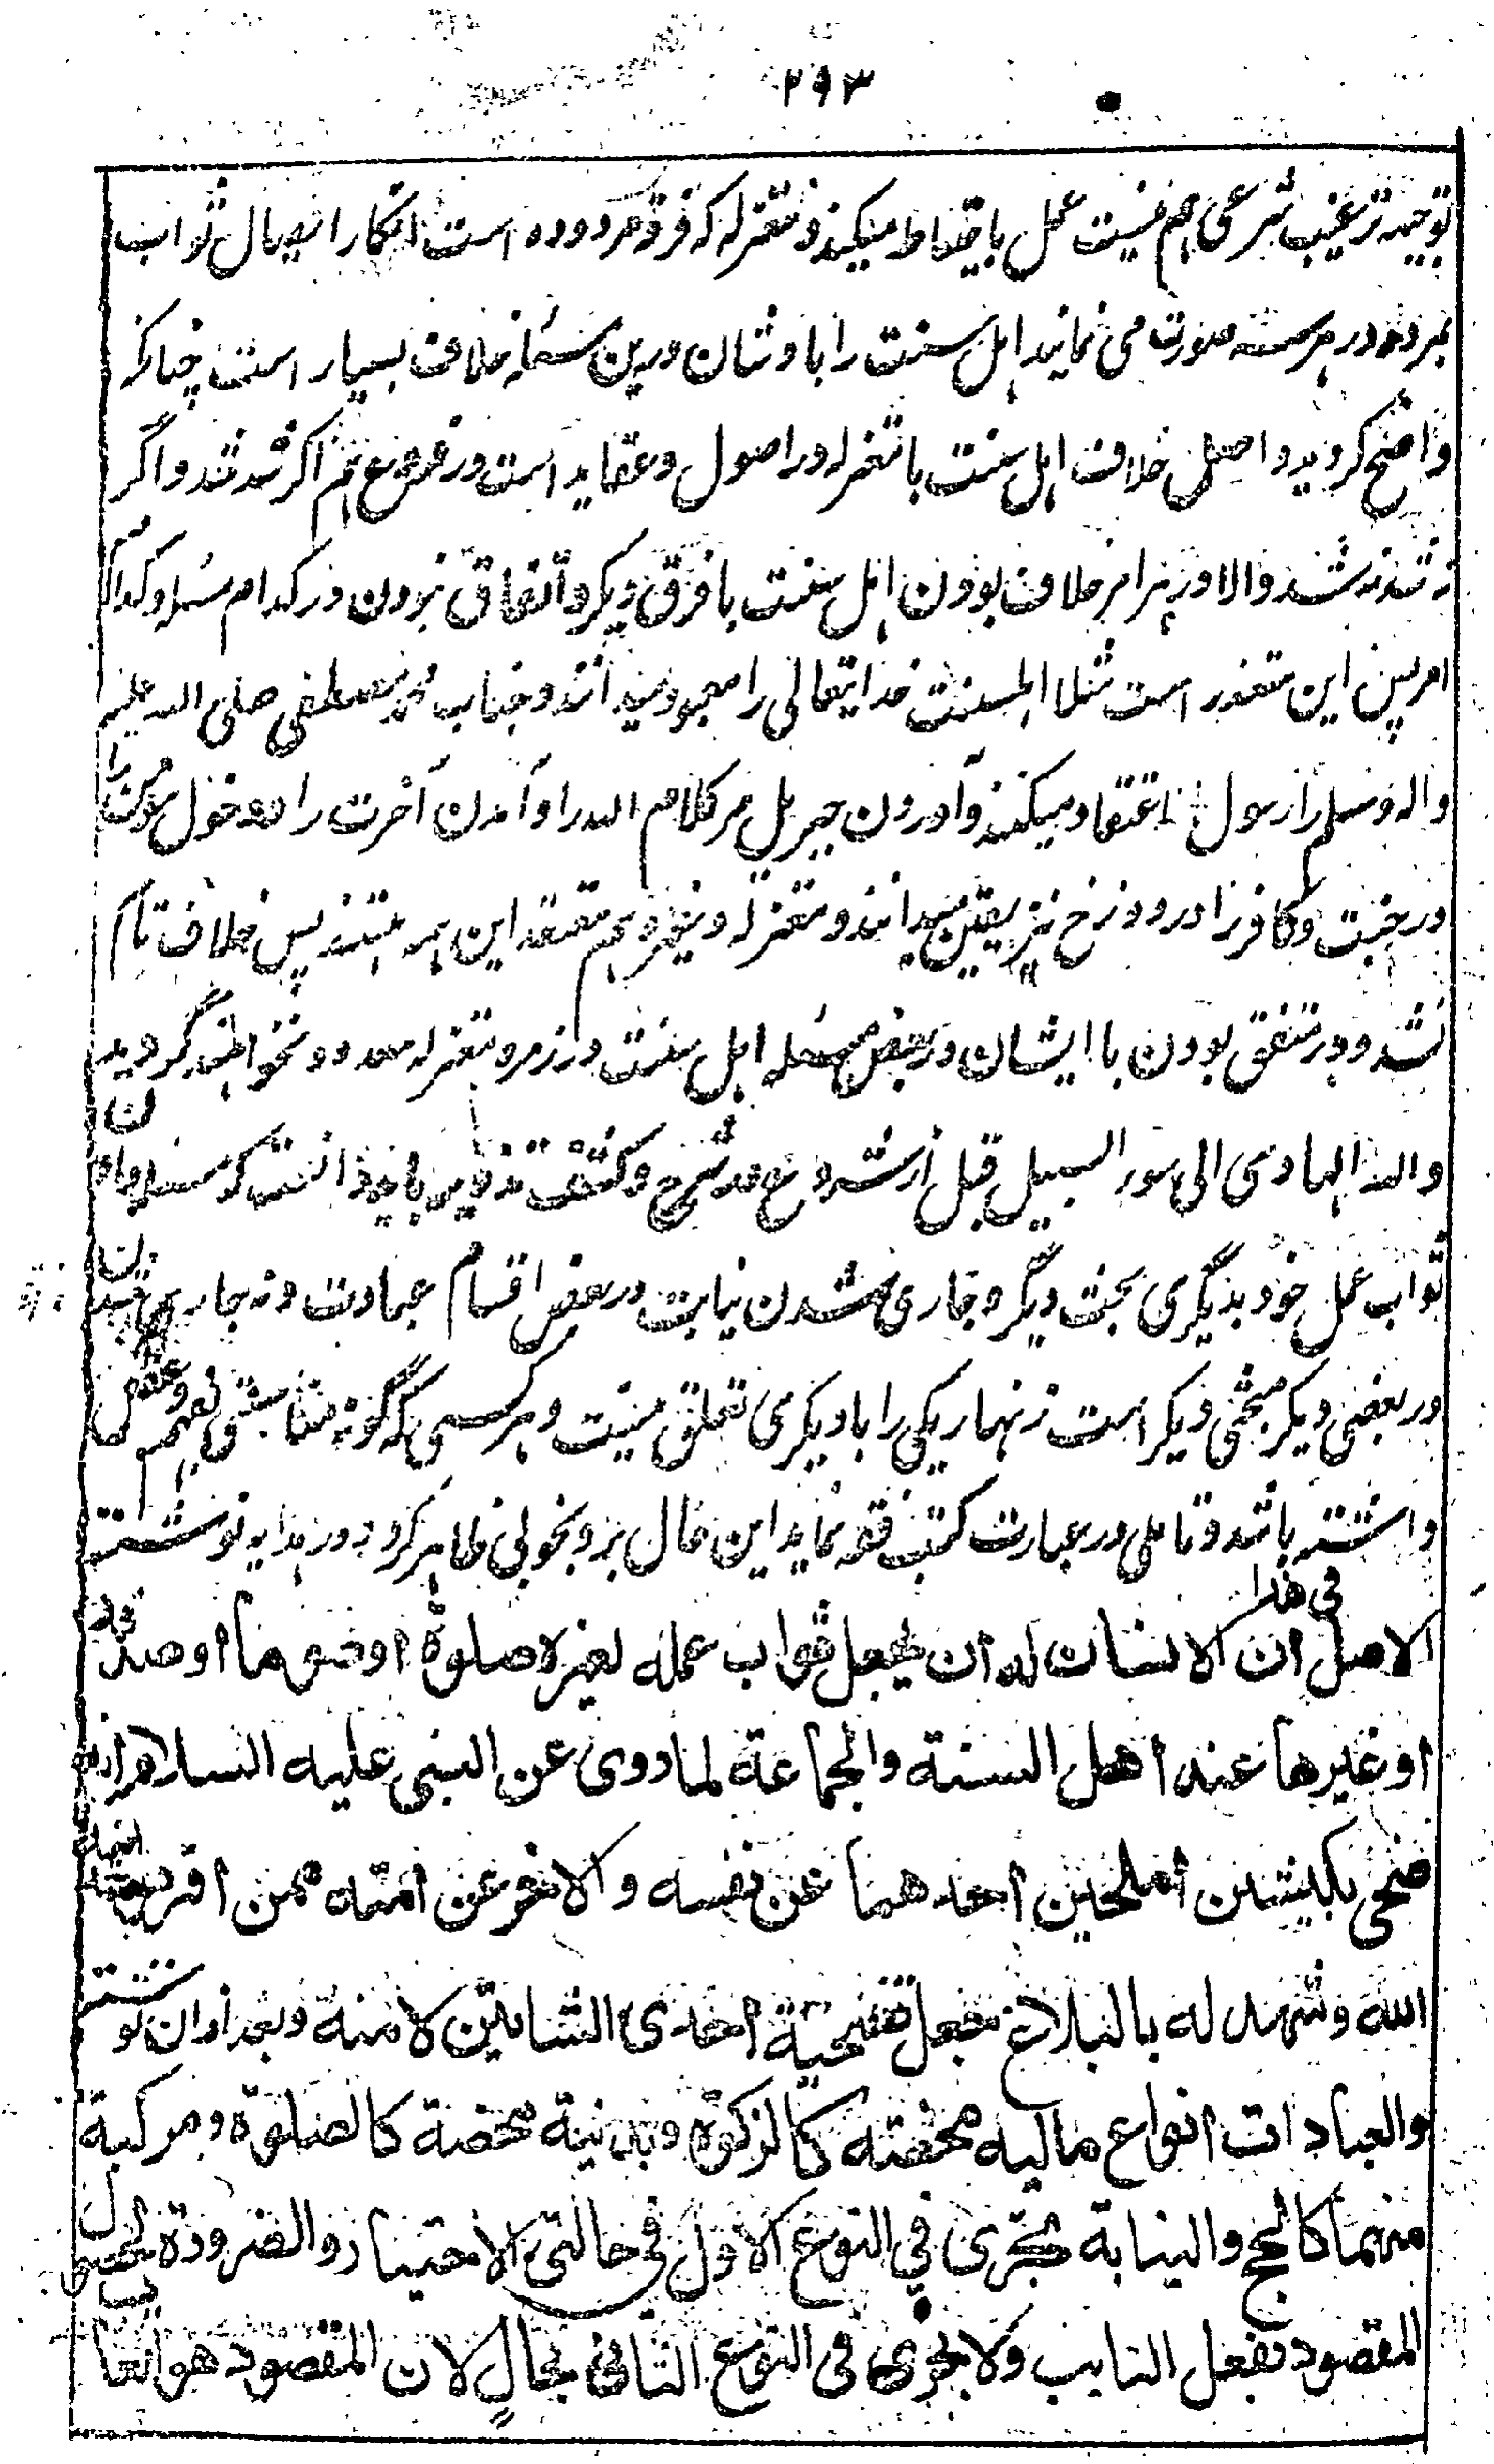 ۲۹۳
توجیه ترغیب شرعی هم نیست عمل باحتیاط میکنند و معتزله که فرقه مردوده است انکار ایصال ثواب
بمرده در هر سه صورت می نمایند اهل سنت را با وشان درین مسئله خلاف بسیار است چنانکه
واضح گردید و اصل خلاف اهل سنت با معتزله در اصول و عقاید است در فروع هم اگر شد شد و اگر
نه شد نه شد والا در هر امر خلاف بودن اهل سنت با فرق دیگر و اتفاق نبودن در کدام مسئله و کدام
امر بین این متعذر است مثلا اهلسنت خدایتعالی را معبود میدانند و جناب محمد مصطفی صلی الله علیه
واله وسلم را رسول اعتقاد میکنند و آوردن جبریل مر کلام الله را و آمدن آخرت را و دخول مومن را
در جنت و کافر را در دوزخ نیز یقین میدانند و معتزله و غیره هم معتقد این همه هستند پس خلاف تام
نشد و در متفق بودن با ایشان در بعض مسئله اهل سنت در زمره معتزله معدود نخواهند گردید
والله الهادی الی سواء السبیل قبل از شروع در شرح و کشف تزویر باید دانست که مسئله دادن
ثواب عمل خود بدیگری بحث دیگر و جاری شدن نیابت در بعض اقسام عبادت و نه جاری شدن
در بعضی دیگر مبحثی دیگر است زنهار یکی را با دیگری تعلق نیست و هر کسی که گونه مناسبتی بفهم و عقل
داشته باشد و تاملی در عبارت کتب فقه نماید این حال بر و بخوبی ظاهر گردد در هدایه نوشته
الاصل فی هذا ان الانسان له ان یجعل ثواب عمله لغیره صلوة او صوما او صدقة
او غیرها عند اهل السنة والجماعة لما روی عن النبی علیه السلام انه
ضحی بکبشین املحین احدهما عن نفسه والاخر عن امته ممن اقر بوحدانیة
الله وشهد له بالبلاغ فجعل تضحیة احدی الشاتین لامته وبعد ازان نوشته
والعبادات انواع مالیة محضة کالزکوة وبدنیة محضة کالصلوة ومرکبة
منهما کالحج والنیابة تجری فی النوع الاول فی حالتی الاختیار والضرورة لحصول
المقصود بفعل النایب ولا یجری فی النوع الثانی بحال لان المقصود هو اتعاب